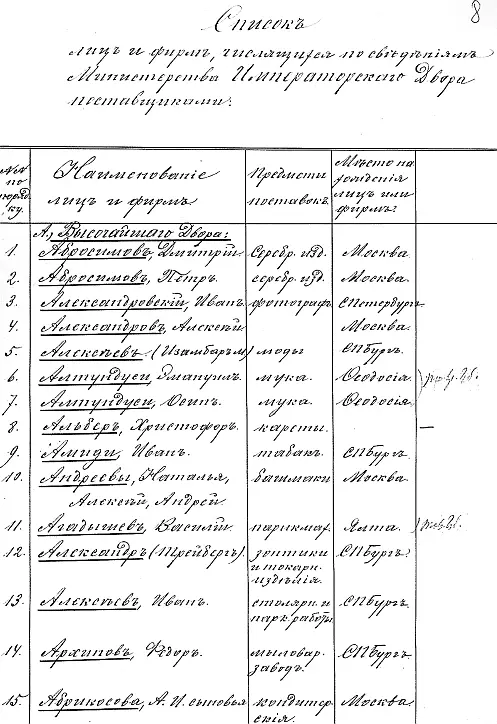 8
Списокъ
лицъ и фирмъ, числящихся по свѣдѣніямъ
Министерства Императорскаго Двора
поставщиками:
№№ по порядку. Наименованіе лицъ и фирмъ Предметы поставокъ. Мѣсто нахожденія лицъ или фирмъ.
А, Высочайшаго Двора:
1. Абросимовъ, Дмитрій серебр. изд. Москва.
2. Абросимовъ, Петръ. серебр. изд. Москва.
3. Александровскій, Иванъ. фотографъ. СПетербургъ
4. Александровъ, Алексѣй Москва.
5. Алексѣевъ (Изамбаръ) моды СПбургъ.
6. Алтундуси, Эмануилъ. мука. Ѳеодосія.
7. Алтундуси, Осипъ. мука. Ѳеодосія.
8. Альберъ, Христофоръ. кареты. —
9. Амиди, Иванъ. табакъ. СПбургъ.
10. Андреевы, Наталья, башмаки Москва.
Алексѣй, Андрей.
11. Агадышевъ, Василій. парикмах. Ялта.
12. Александръ (Трейбергъ). зонтики СПбургъ.
и токарн.
издѣлія.
13. Алексѣевъ, Иванъ. столярн. и СПбургъ.
парк. работы
14. Архиповъ, Ѳедоръ. мыловар. СПбургъ.
заводъ.
15. Абрикосова, А. И. сыновья кондитер- Москва.
скія.